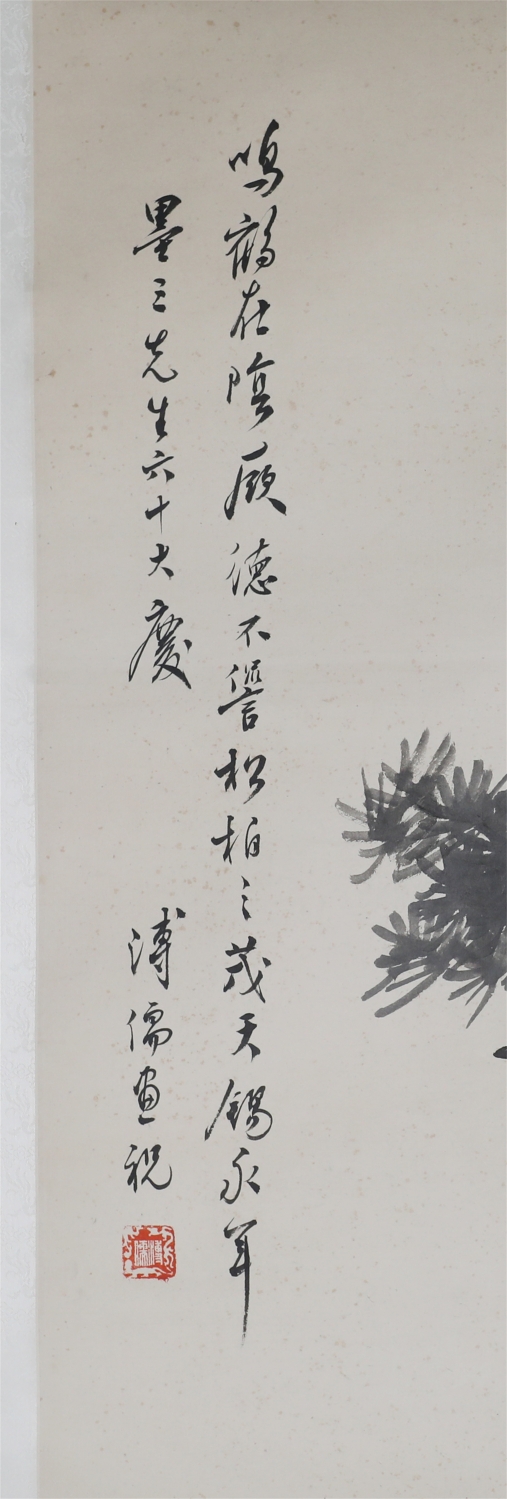 鳴鶴在陰厥德不諐松柏之茂天錫永年
墨三先生六十大慶
溥儒畫祝
溥儒